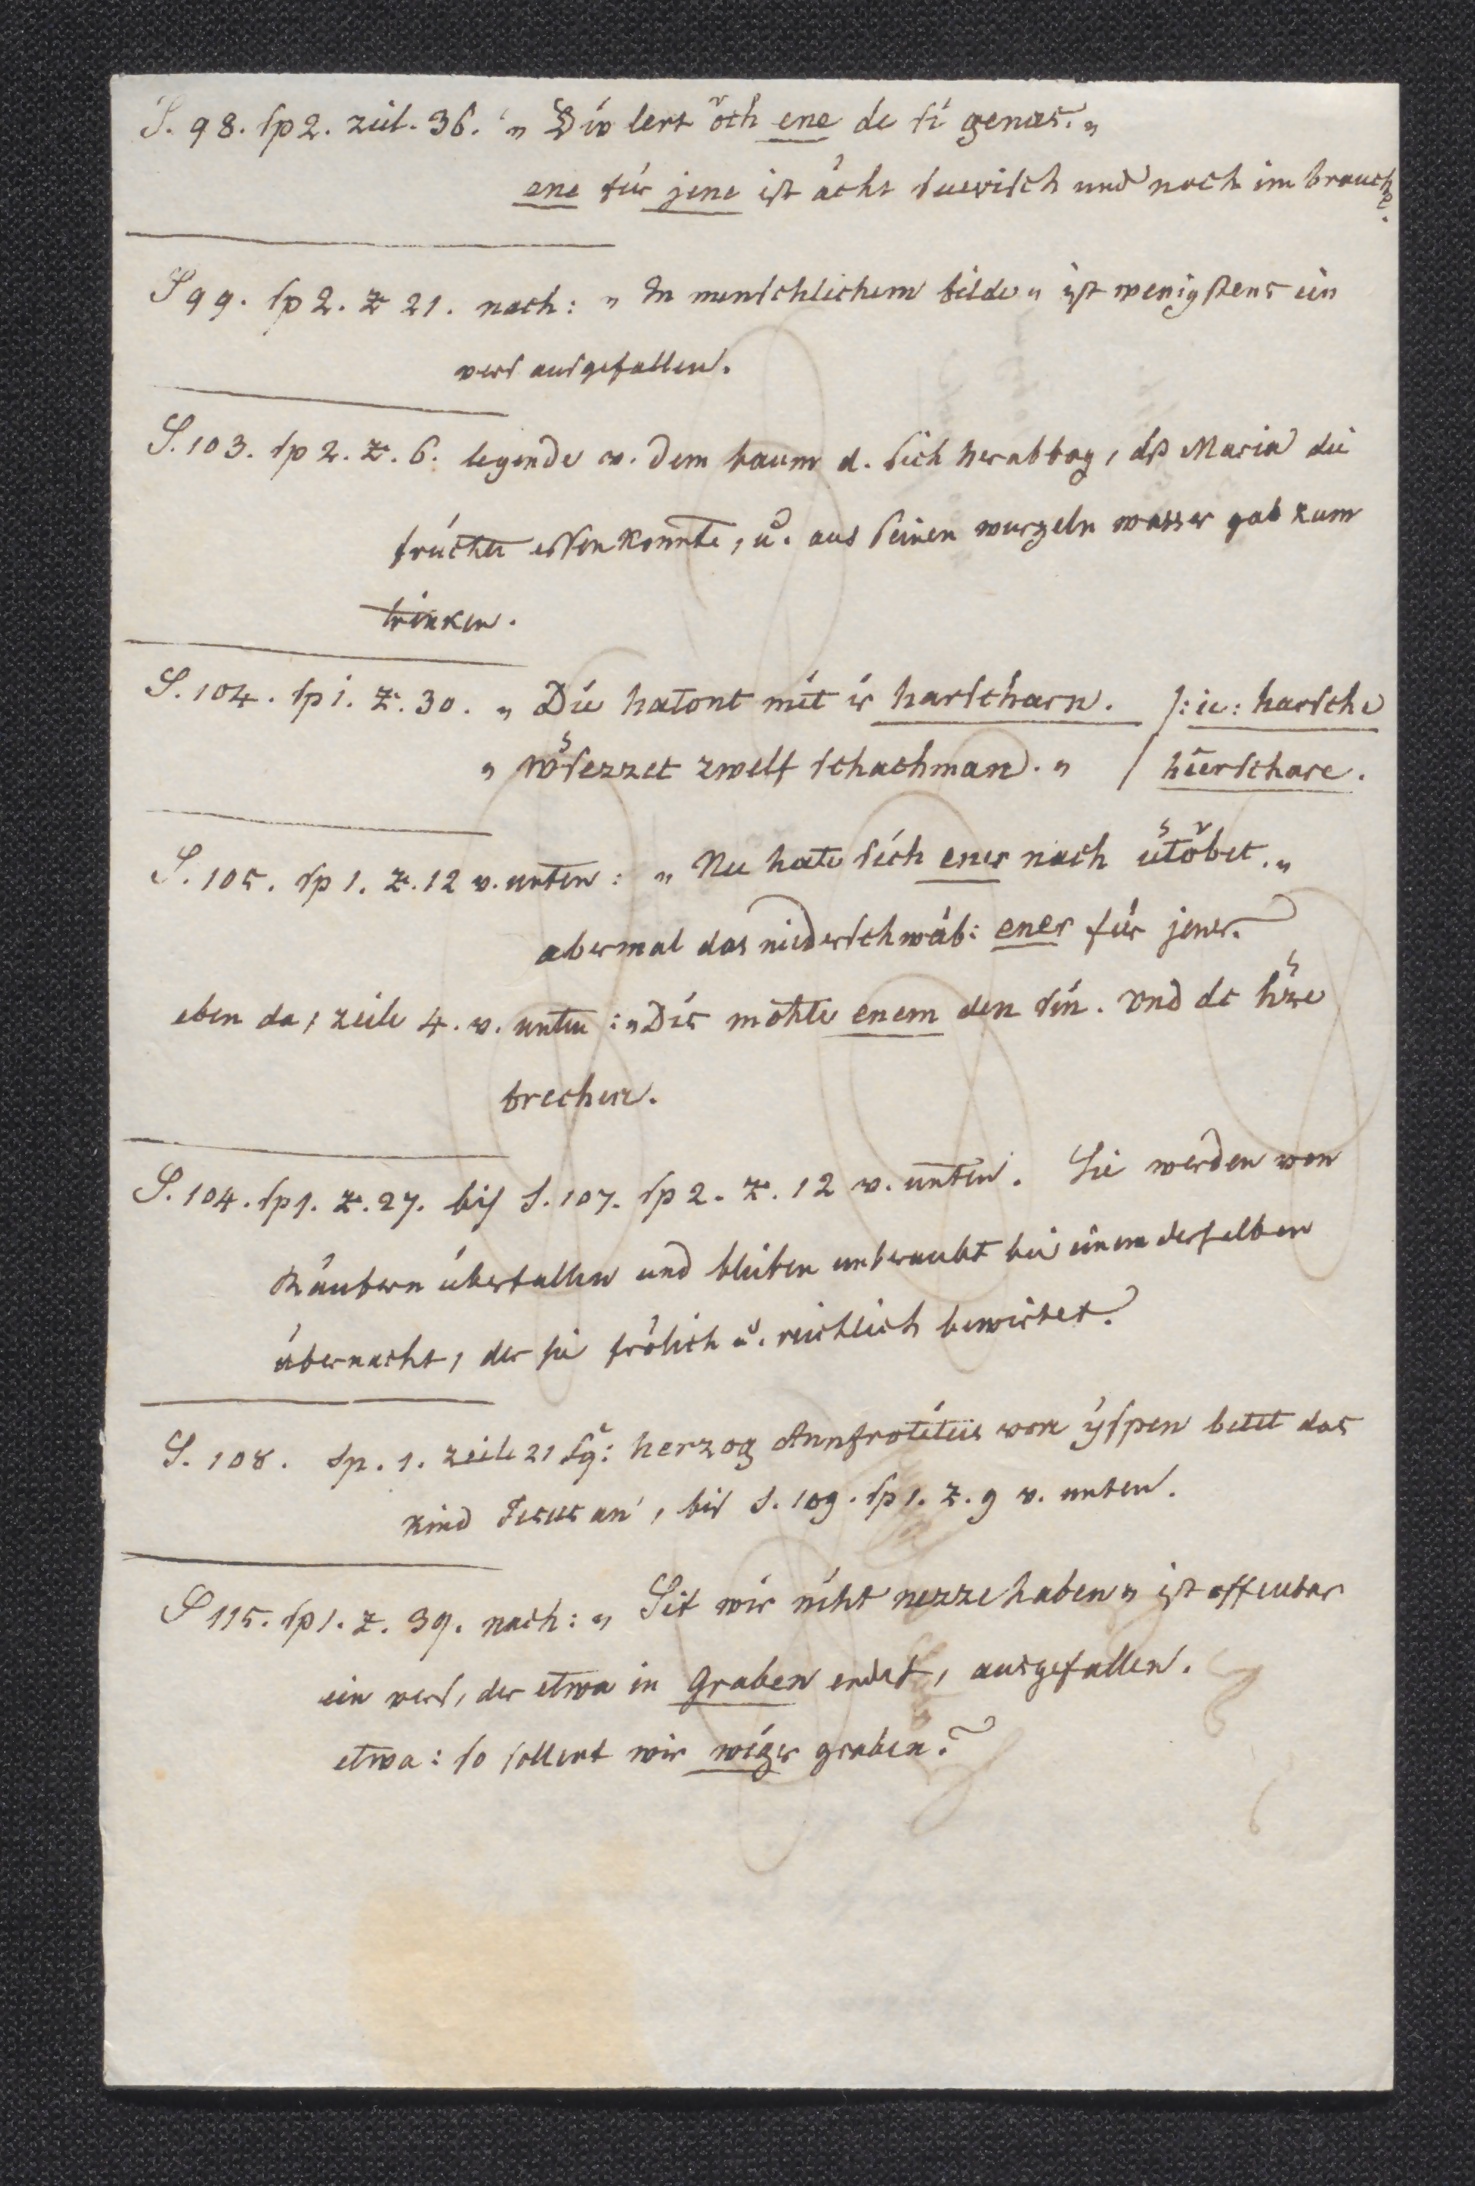 S. 98. sp 2. zeil. 36. „ Div lert oͮch ene de si genas. „
ene für jene ist ächt suevisch und noch im brauche.
S 99. sp 2. z 21. nach: „ In menschlichem bilde „ ist wenigstens ein
vers ausgefallen.
S. 103. sp 2. z. 6. legende v. dem baum d. sich herabbog, dß Maria die
früchte essen konnte, u. aus seinen wurzeln wasser gab zum
trinken.
S. 104. sp 1. z. 30. „ Die hatont mit ir harscharn. |: ie: harsche
„ sezzet zwelf schachman. „ / hierschare.
S. 105. sp 1. z. 12 v. unten: „ Nu hate sich ener nach „
abermal das niederschwäb: ener für jener.
eben da, zeile 4. v. unten: „ Dis mohte enem den sin. vnd de
brechen.
S. 104. sp 1. z. 27. bis S. 107. sp 2. z. 12 v. unten. Sie werden von
Räubern überfallen und bleiben unberaubt bei einem derselben
übernacht, der sie frölich u. reichlich bewirtet.
S. 108. sp. 1. zeile 21 sq: herzog von ẏspen betet das
kind Jesus an, bis S. 109. sp 1. z. 9 v. unten.
S 115. sp 1. z. 39. nach: „ Sit wir niht nezze haben „ ist offenbar
ein vers, der etwa in graben endet, ausgefallen.
etwa: so sollent wir wiger graben.